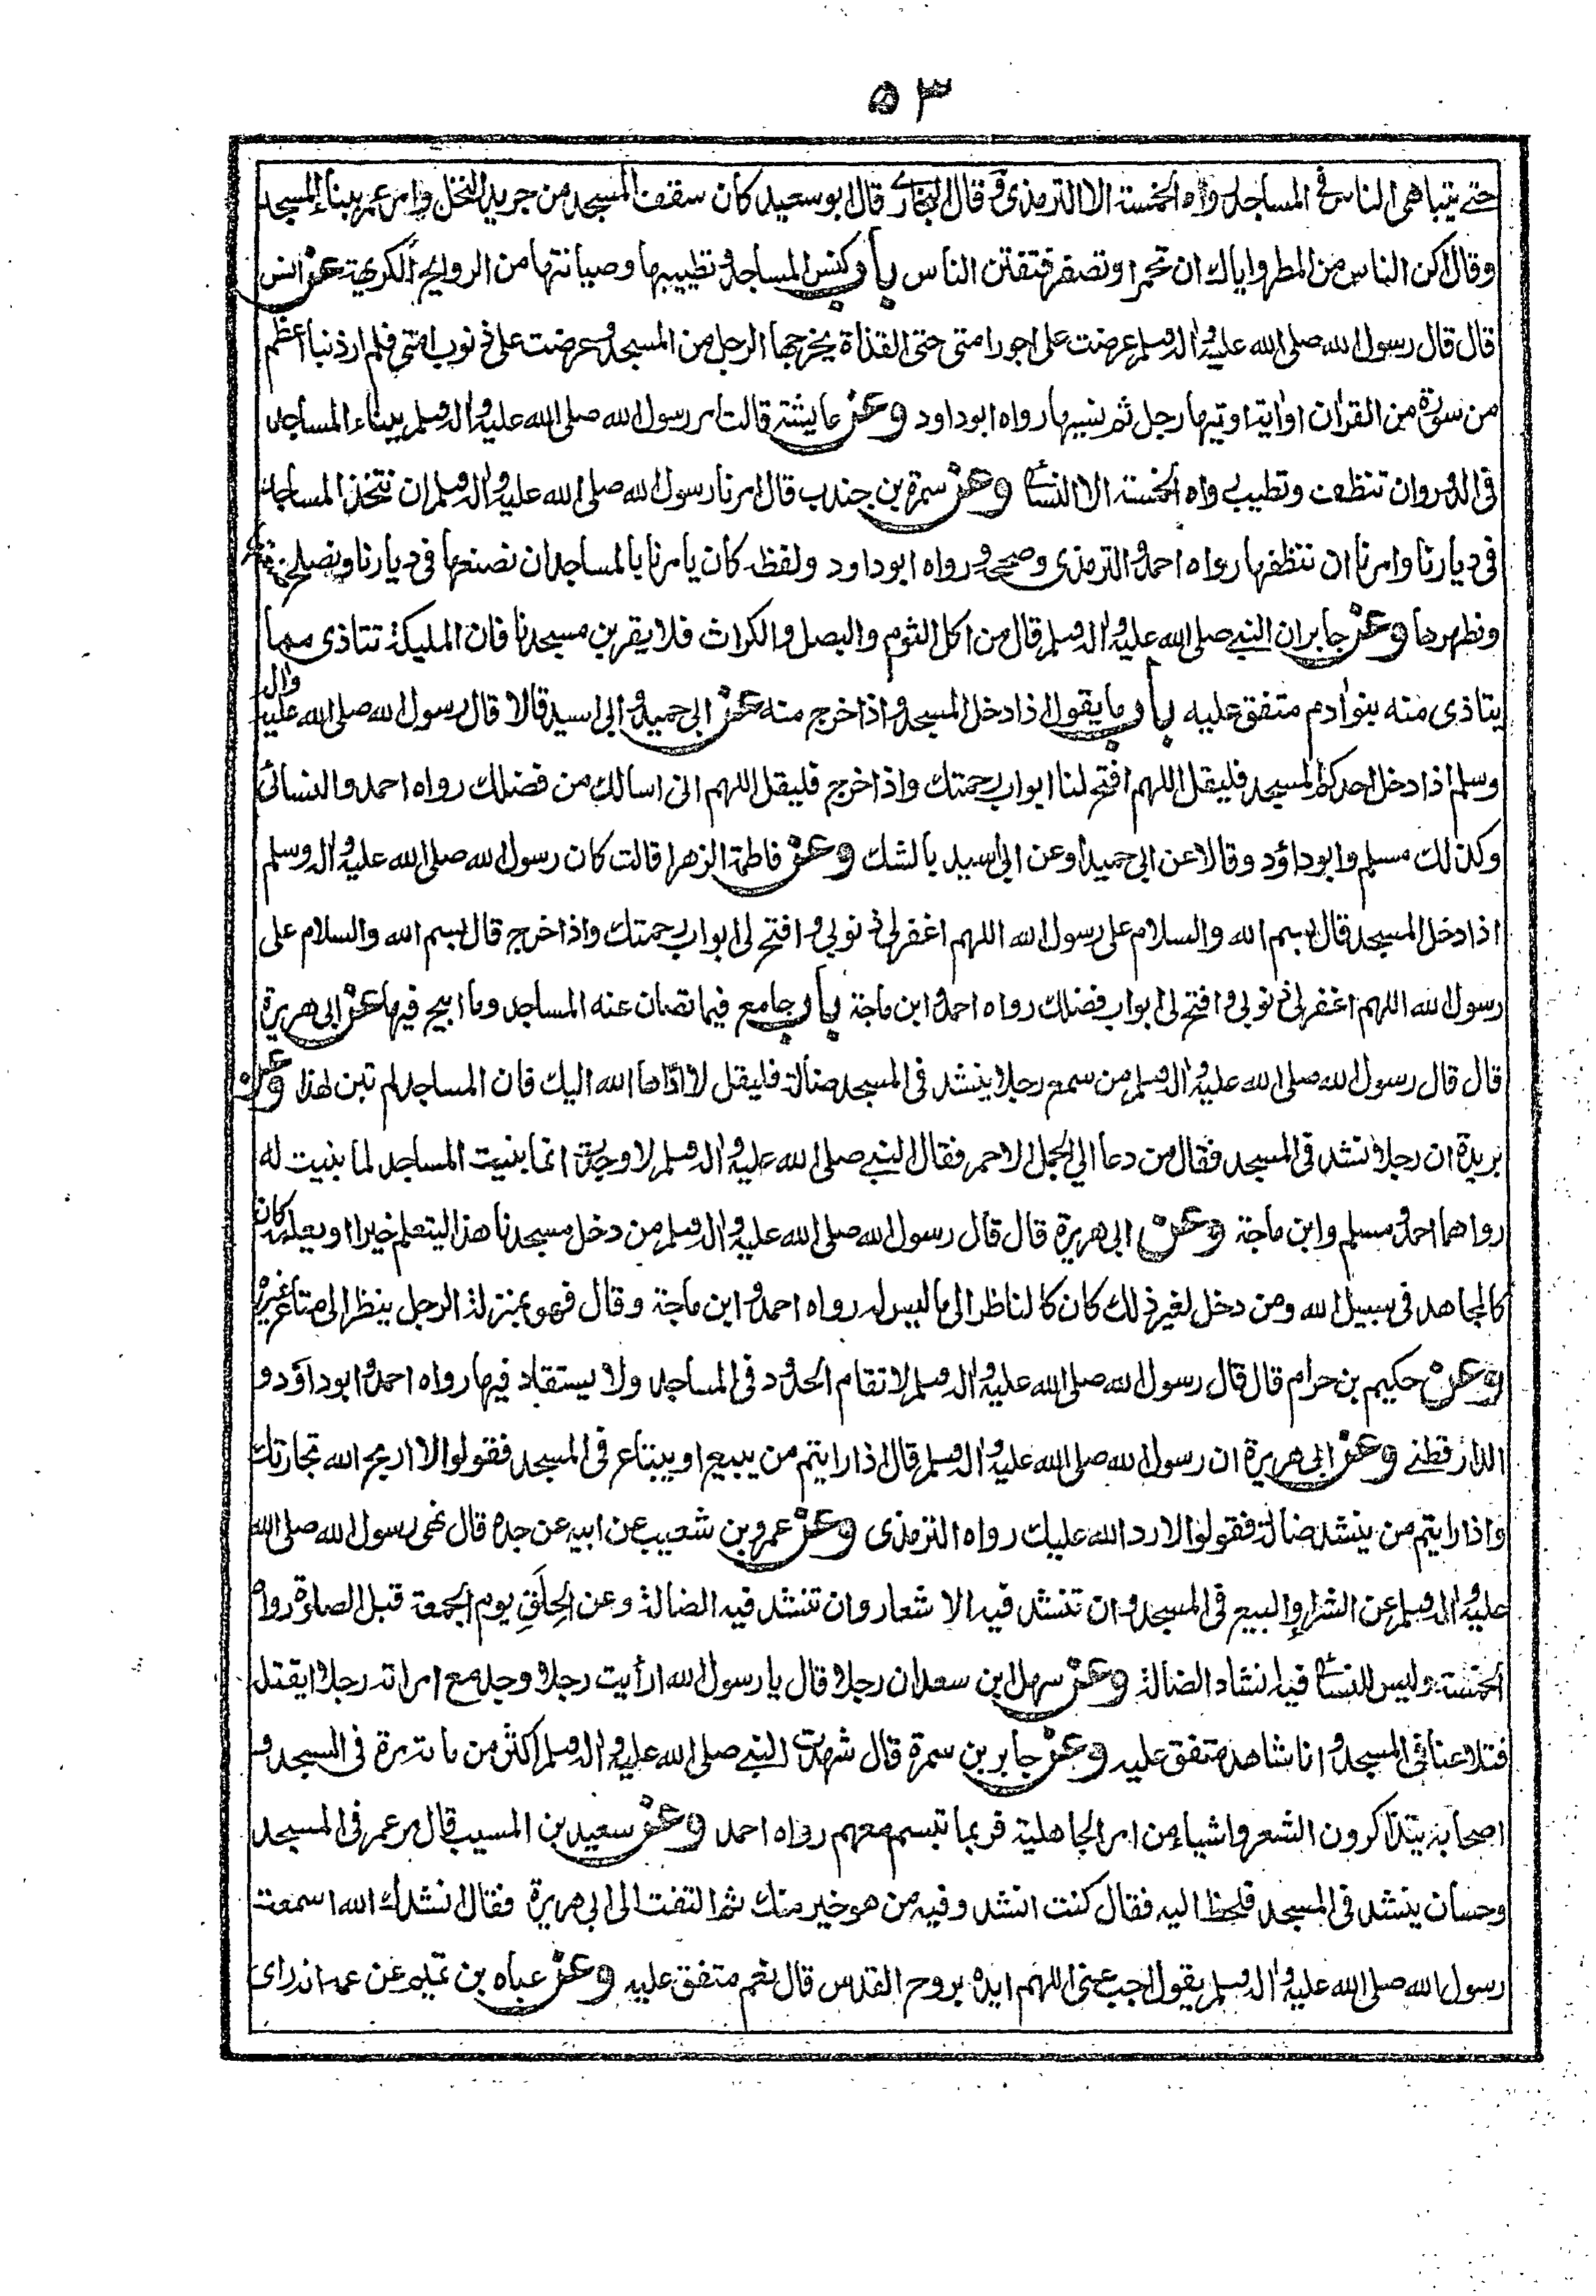 ٥٣
حتى يتباهى الناس فى المساجد رواه الخمسة الا الترمذى وقال البخارى قال ابو سعيد كان سقف المسجد من جريد النخل وامر عمر ببناء المسجد
وقال اكن الناس من المطر واياك ان تحمر او تصفر فتفتن الناس باب كنس المساجد وتطييبها وصيانتها من الروايح الكريهة عن انس
قال قال رسول الله صلى الله عليه واله وسلم عرضت على اجور امتى حتى القذاة يخرجها الرجل من المسجد وعرضت على ذنوب امتى فلم ار ذنبا اعظم
من سورة من القران او اية اوتيها رجل ثم نسيها رواه ابو داود وعن عايشة قالت امر رسول الله صلى الله عليه واله وسلم ببناء المساجد
فى الدور وان تنظف وتطيب رواه الخمسة الا النسائى وعن سمرة بن جندب قال امرنا رسول الله صلى الله عليه واله وسلم ان نتخذ المساجد
فى ديارنا وامرنا ان ننظفها رواه احمد والترمذى وصححه ورواه ابو داود ولفظه كان يامرنا بالمساجد ان نصنعها فى ديارنا ونصلح صنعتها
ونطهرها وعن جابر ان النبى صلى الله عليه واله وسلم قال من اكل الثوم والبصل والكراث فلا يقربن مسجدنا فان المليكة تتاذى مما
يتاذى منه بنو ادم متفق عليه باب ما يقول اذا دخل المسجد واذا خرج منه عن ابى حميد وابى اسيد قالا قال رسول الله صلى الله عليه واله
وسلم اذا دخل احدكم المسجد فليقل اللهم افتح لنا ابواب رحمتك واذا خرج فليقل اللهم انى اسالك من فضلك رواه احمد والنسائى
وكذلك مسلم وابو داؤد وقالا عن ابى حميد او عن ابى أسيد بالشك وعن فاطمة الزهرا قالت كان رسول الله صلى الله عليه واله وسلم
اذا دخل المسجد قال بسم الله والسلام على رسول الله اللهم اغفر لى ذنوبى وافتح لى ابواب رحمتك واذا خرج قال بسم الله والسلام على
رسول الله اللهم اغفر لى ذنوبى وافتح لى ابواب فضلك رواه احمد وابن ماجة باب جامع فيما تصان عنه المساجد وما ابيح فيها عن ابى هريرة
قال قال رسول الله صلى الله عليه واله وسلم من سمع رجلا ينشد فى المسجد ضالة فليقل لا ادّاها الله اليك فان المساجد لم تبن لهذا وعن
بريدة ان رجلا نشد فى المسجد فقال من دعا الى الجمل الاحمر فقال النبى صلى الله عليه واله وسلم لا وجدت انما بنيت المساجد لما بنيت له
رواهما احمد ومسلم وابن ماجة وعن ابى هريرة قال قال رسول الله صلى الله عليه واله وسلم من دخل مسجدنا هذا ليتعلم خيرا او يعلمه كان
كالمجاهد فى سبيل الله ومن دخل لغير ذلك كان كالناظر الى ما ليس له رواه احمد وابن ماجة وقال فهو بمنزلة الرجل ينظر الى متاع غيره
وعن حكيم بن حزام قال قال رسول الله صلى الله عليه واله وسلم لا تقام الحدود فى المساجد ولا يستقاد فيها رواه احمد وابو داؤد و
الدارقطنى وعن ابى هريرة ان رسول الله صلى الله عليه واله وسلم قال اذا رايتم من يبيع او يبتاع فى المسجد فقولوا لا اربح الله تجارتك
واذا رايتم من ينشد ضالة فقولوا لا رد الله عليك رواه الترمذى وعن عمرو بن شعيب عن ابيه عن جده قال نهى رسول الله صلى الله
عليه واله وسلم عن الشراء والبيع فى المسجد وان تنشد فيه الاشعار وان تنشد فيه الضالة وعن الحِلَقِ يوم الجمعة قبل الصلوة رواه
الخمسة وليس للنسائى فيه انشاد الضالة وعن سهل ابن سعد ان رجلا قال يا رسول الله ارأيت رجلا وجد مع امراته رجلا ايقتله
فتلاعنا فى المسجد وانا شاهد متفق عليه وعن جابر بن سمرة قال شهدت النبى صلى الله عليه واله وسلم اكثر من ماتة مرة فى المسجد و
اصحابه يتذاكرون الشعر واشياء من امر الجاهلية فربما تبسم معهم رواه احمد وعن سعيد بن المسيب قال مر عمر فى المسجد
وحسان ينشد فى المسجد فلحظ اليه فقال كنت انشد وفيه من هو خير منك ثم التفت الى ابى هريرة فقال انشدك الله اسمعت
رسول الله صلى الله عليه واله وسلم يقول اجب عنى اللهم ايده بروح القدس قال نعم متفق عليه وعن عباه بن تميم عن عمه انه راى